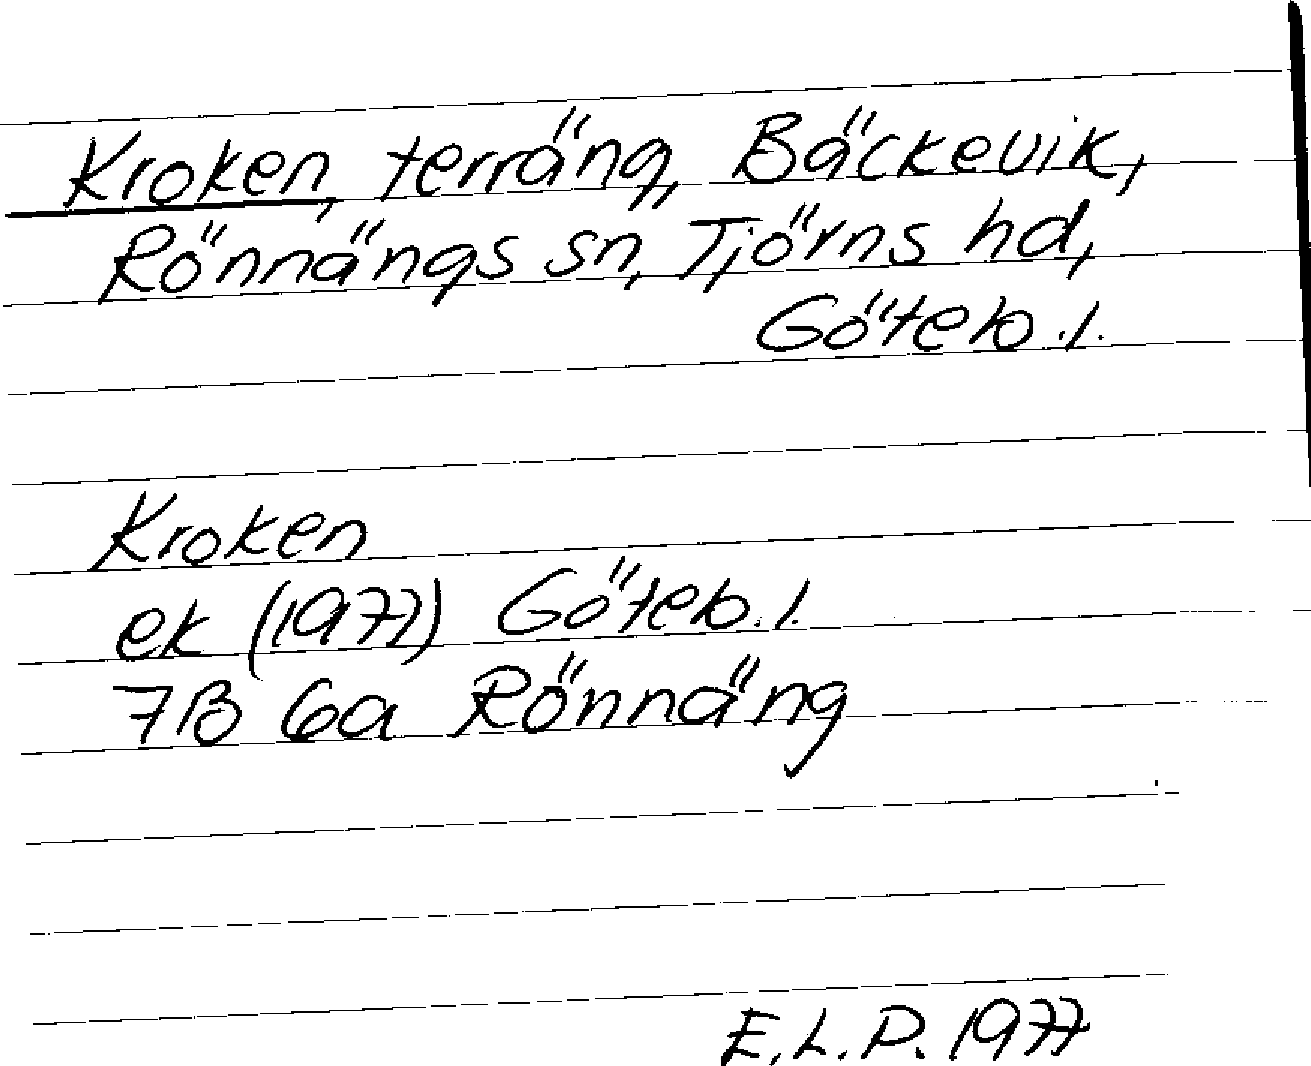 Kroken, terräng, Bäckevik,
Rönnängs sn, Tjörns hd,
Göteb.l.
Kroken
ek (1977) Göteb.l.
7B 6a Rönnäng
E.L.P. 1977